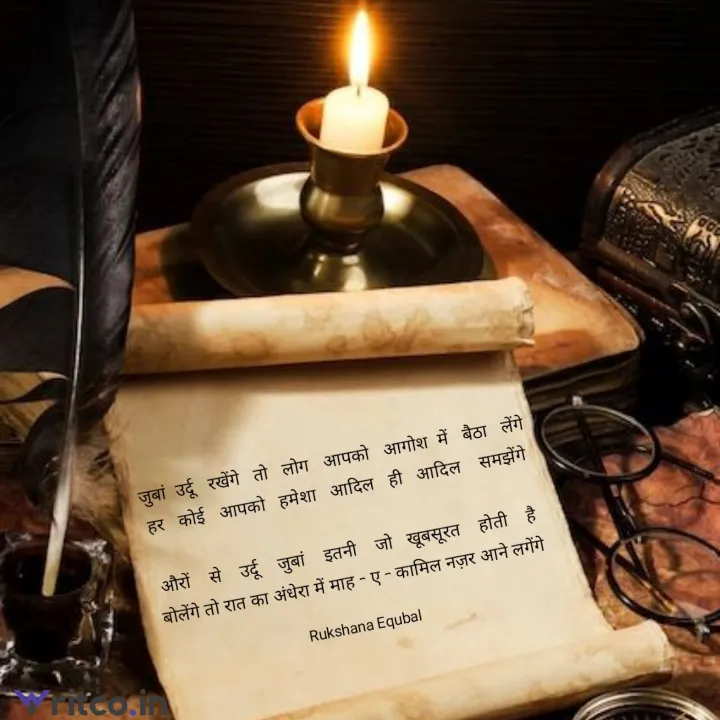 जुबां उर्दू रखेंगे तो लोग आपको आगोश में बैठा लेंगे
हर कोई आपको हमेशा आदिल ही आदिल समझेंगे
औरों से उर्दू जुबां इतनी जो खूबसूरत होती है
बोलेंगे तो रात का अंधेरा में माह - ए - कामिल नज़र आने लगेंगे
Rukshana Equbal
Writco.in